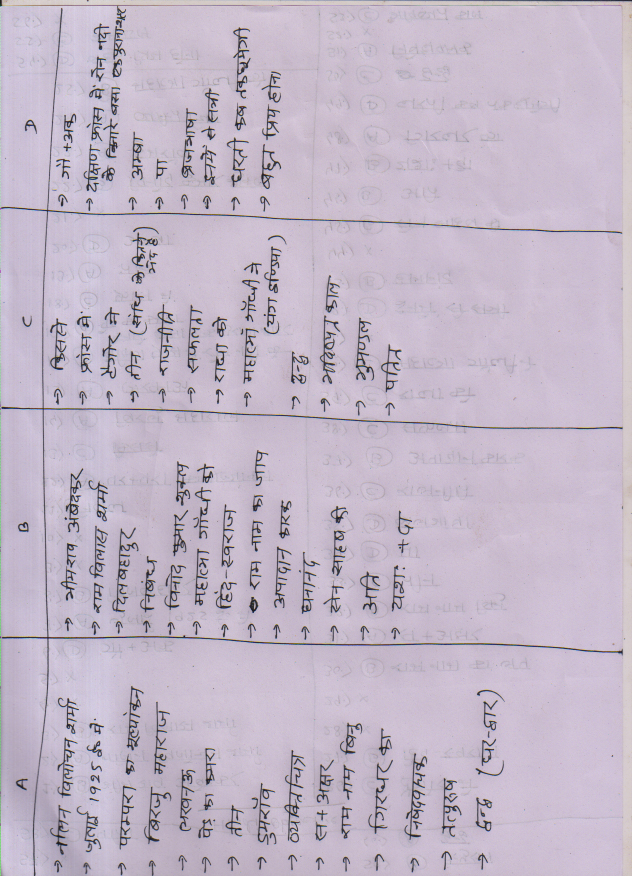 A
→ नलिन विलोचन शर्मा
→ जुलाई 1925 ई० में
→ परम्परा का मूल्यांकन
→ बिरजु महाराज
→ लखनऊ
→ पेड़ का कटना
→ तीन
→ डुमराँव
→ व्यक्तिचित्र
→ स + अक्षर
→ राम नाम बिनु
→ गिरधर का
→ निषेधवाचक
→ तत्पुरुष
→ द्वन्द्व (घर-द्वार)
B
→ भीमराव अंबेदकर
→ राम विलास शर्मा
→ दिलबहादुर
→ निबंध
→ विनोद कुमार शुक्ल
→ महात्मा गाँधी को
→ हिंद-स्वराज
→ राम नाम का जाप
→ अपादान कारक
→ घनानंद
→ सेन साहब की
→ अति
→ यशः + दा
C
→ किससे
→ फ्रांस में
→ टैगोर ने
→ तीन (संधि के कितने भेद हैं)
→ राजनीति
→ सफलता
→ राधा को
→ महात्मा गाँधी ने
(यंग इण्डिया)
→ द्वन्द्व
→ भविष्यत काल
→ गुमला
→ पतित
D
→ गौ + अक
→ दक्षिण फ्रांस में रोन नदी
के किनारे बसा एक पुराना शहर
→ अम्बा
→ पा
→ ब्रजभाषा
→ इनमें से सभी
→ धरती कब तक घूमेगी
→ बहुत प्रिय होना